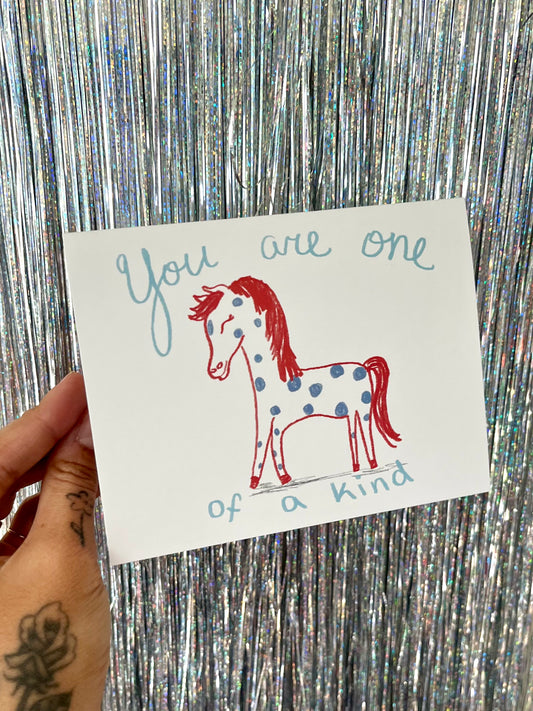 You are one
of a kind